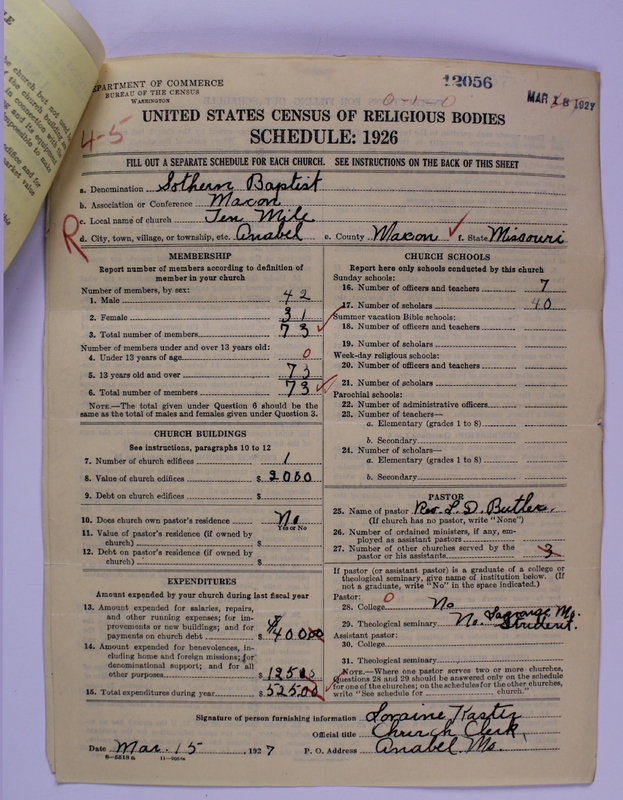 DEPARTMENT OF COMMERCE
BUREAU OF THE CENSUS
WASHINGTON
12056
MAR 18 1927
0-1-0
4-5
UNITED STATES CENSUS OF RELIGIOUS BODIES
SCHEDULE: 1926
FILL OUT A SEPARATE SCHEDULE FOR EACH CHURCH. SEE INSTRUCTIONS ON THE BACK OF THIS SHEET
a. Denomination Sothern Baptist
b. Association or Conference Macon
c. Local name of church Ten Mile
R
d. City, town, village, or township, etc. Anabel e. County Macon f. State Missouri
MEMBERSHIP
Report number of members according to definition of
member in your church
Number of members, by sex:
1. Male 42
2. Female 31
3. Total number of members 73
Number of members under and over 13 years old:
4. Under 13 years of age 0
5. 13 years old and over 73
6. Total number of members 73
NOTE.—The total given under Question 6 should be the
same as the total of males and females given under Question 3.
CHURCH BUILDINGS
See instructions, paragraphs 10 to 12
7. Number of church edifices 1
8. Value of church edifices $ 2000
9. Debt on church edifices $
10. Does church own pastor's residence No
Yes or No
11. Value of pastor's residence (if owned by
church) $
12. Debt on pastor's residence (if owned by
church) $
EXPENDITURES
Amount expended by your church during last fiscal year
13. Amount expended for salaries, repairs,
and other running expenses; for im-
provements or new buildings; and for
payments on church debt $ 40000
14. Amount expended for benevolences, in-
cluding home and foreign missions; for
denominational support; and for all
other purposes 12500
15. Total expenditures during year $ 52500
CHURCH SCHOOLS
Report here only schools conducted by this church
Sunday schools:
16. Number of officers and teachers 7
17. Number of scholars 40
Summer vacation Bible schools:
18. Number of officers and teachers
19. Number of scholars
Week-day religious schools:
20. Number of officers and teachers
21. Number of scholars
Parochial schools:
22. Number of administrative officers
23. Number of teachers—
a. Elementary (grades 1 to 8)
b. Secondary
24. Number of scholars—
a. Elementary (grades 1 to 8)
b. Secondary
PASTOR
25. Name of pastor Rev. L. D. Butler.
(If church has no pastor, write "None")
26. Number of ordained ministers, if any, em-
ployed as assistant pastors
27. Number of other churches served by the
pastor or his assistants 3
If pastor (or assistant pastor) is a graduate of a college or
theological seminary, give name of institution below. (If
not a graduate, write "No" in the space indicated.)
Pastor: 0
28. College No
29. Theological seminary No. Lagrange Mo.
Student.
Assistant pastor:
30. College
31. Theological seminary
NOTE.—Where one pastor serves two or more churches,
Questions 28 and 29 should be answered only on the schedule
for one of the churches; on the schedules for the other churches,
write "See schedule for church."
Signature of person furnishing information Loraine Kaster
Official title Church Clerk,
Date Mar. 15, 1927 P. O. Address Anabel Mo.